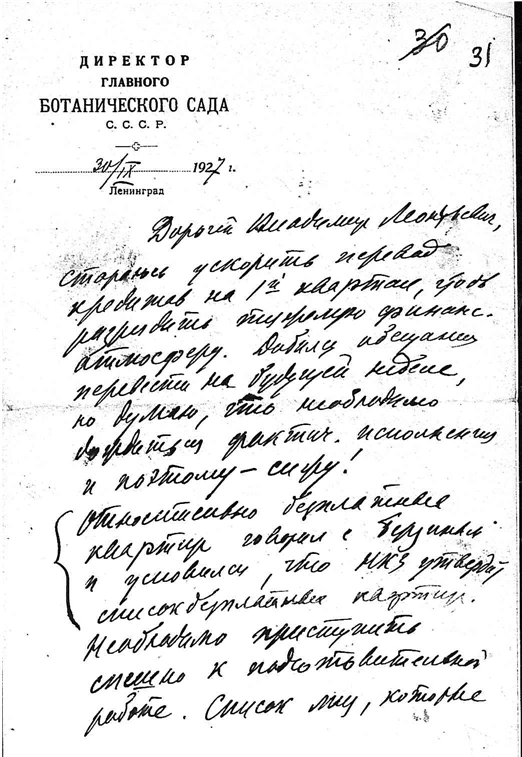 30
31
ДИРЕКТОР
ГЛАВНОГО
БОТАНИЧЕСКОГО САДА
С. С. С. Р.
30/IX 1927 г.
Ленинград
Дорогой Владимир Леонтьевич,
стараюсь ускорить перевод
кредитов на 1й квартал, чтобы
разредить финанс.
атмосферу. Добился обещания
перевести на будущей неделе,
но думаю, что необходимо
дождаться фактич. исполнения
и поэтому – сижу!
Относительно бесплатных
квартир говорил с
и условился, что НКЗ утвердит
список бесплатных квартир.
Необходимо приступить
спешно к подготовительной
работе. Список лиц, которые